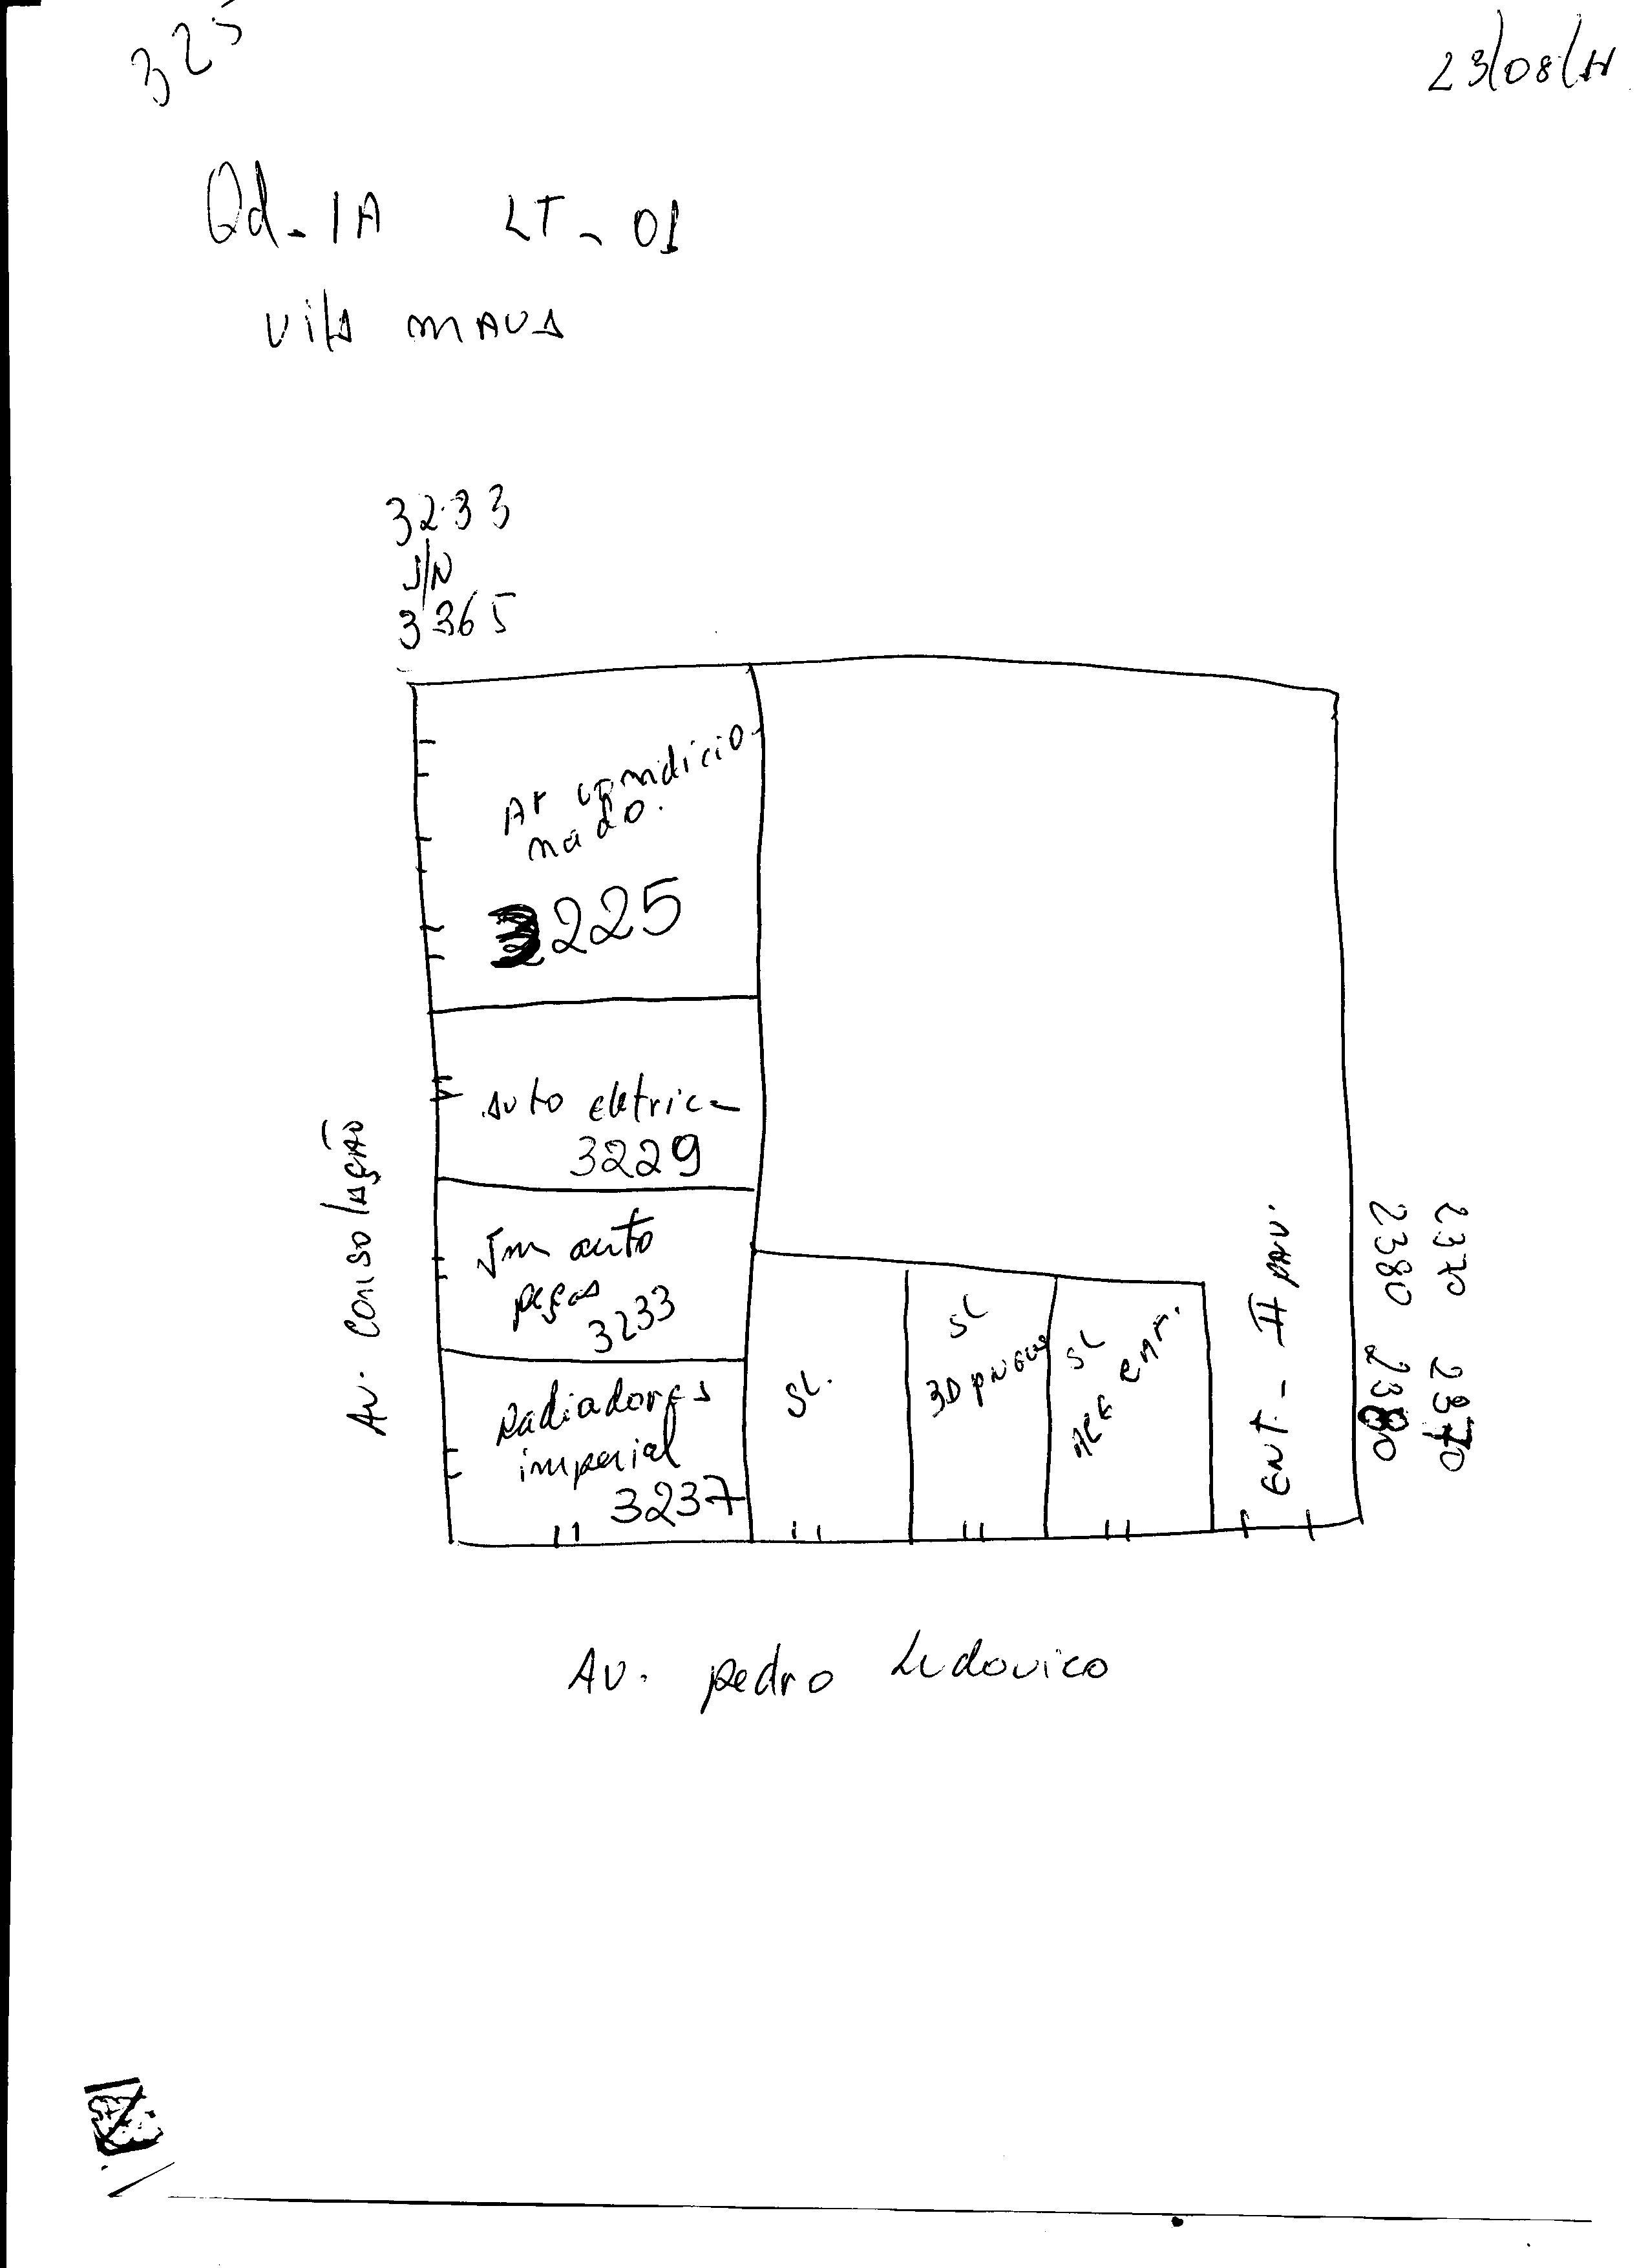 325
23/08/
Qd. 1A LT - 01
Vila MAUA
3233
S/N
3365
Ar condicio
nado.
3225
Auto eletrica
3229
Jm auto
peças
3233
Radiadores
imperial
3237
Av. Consolação
SL.
SL
3D pneus
SL
ENT. - II PAV.
2370 2370
2380 2380
AV. pedro Ludovico